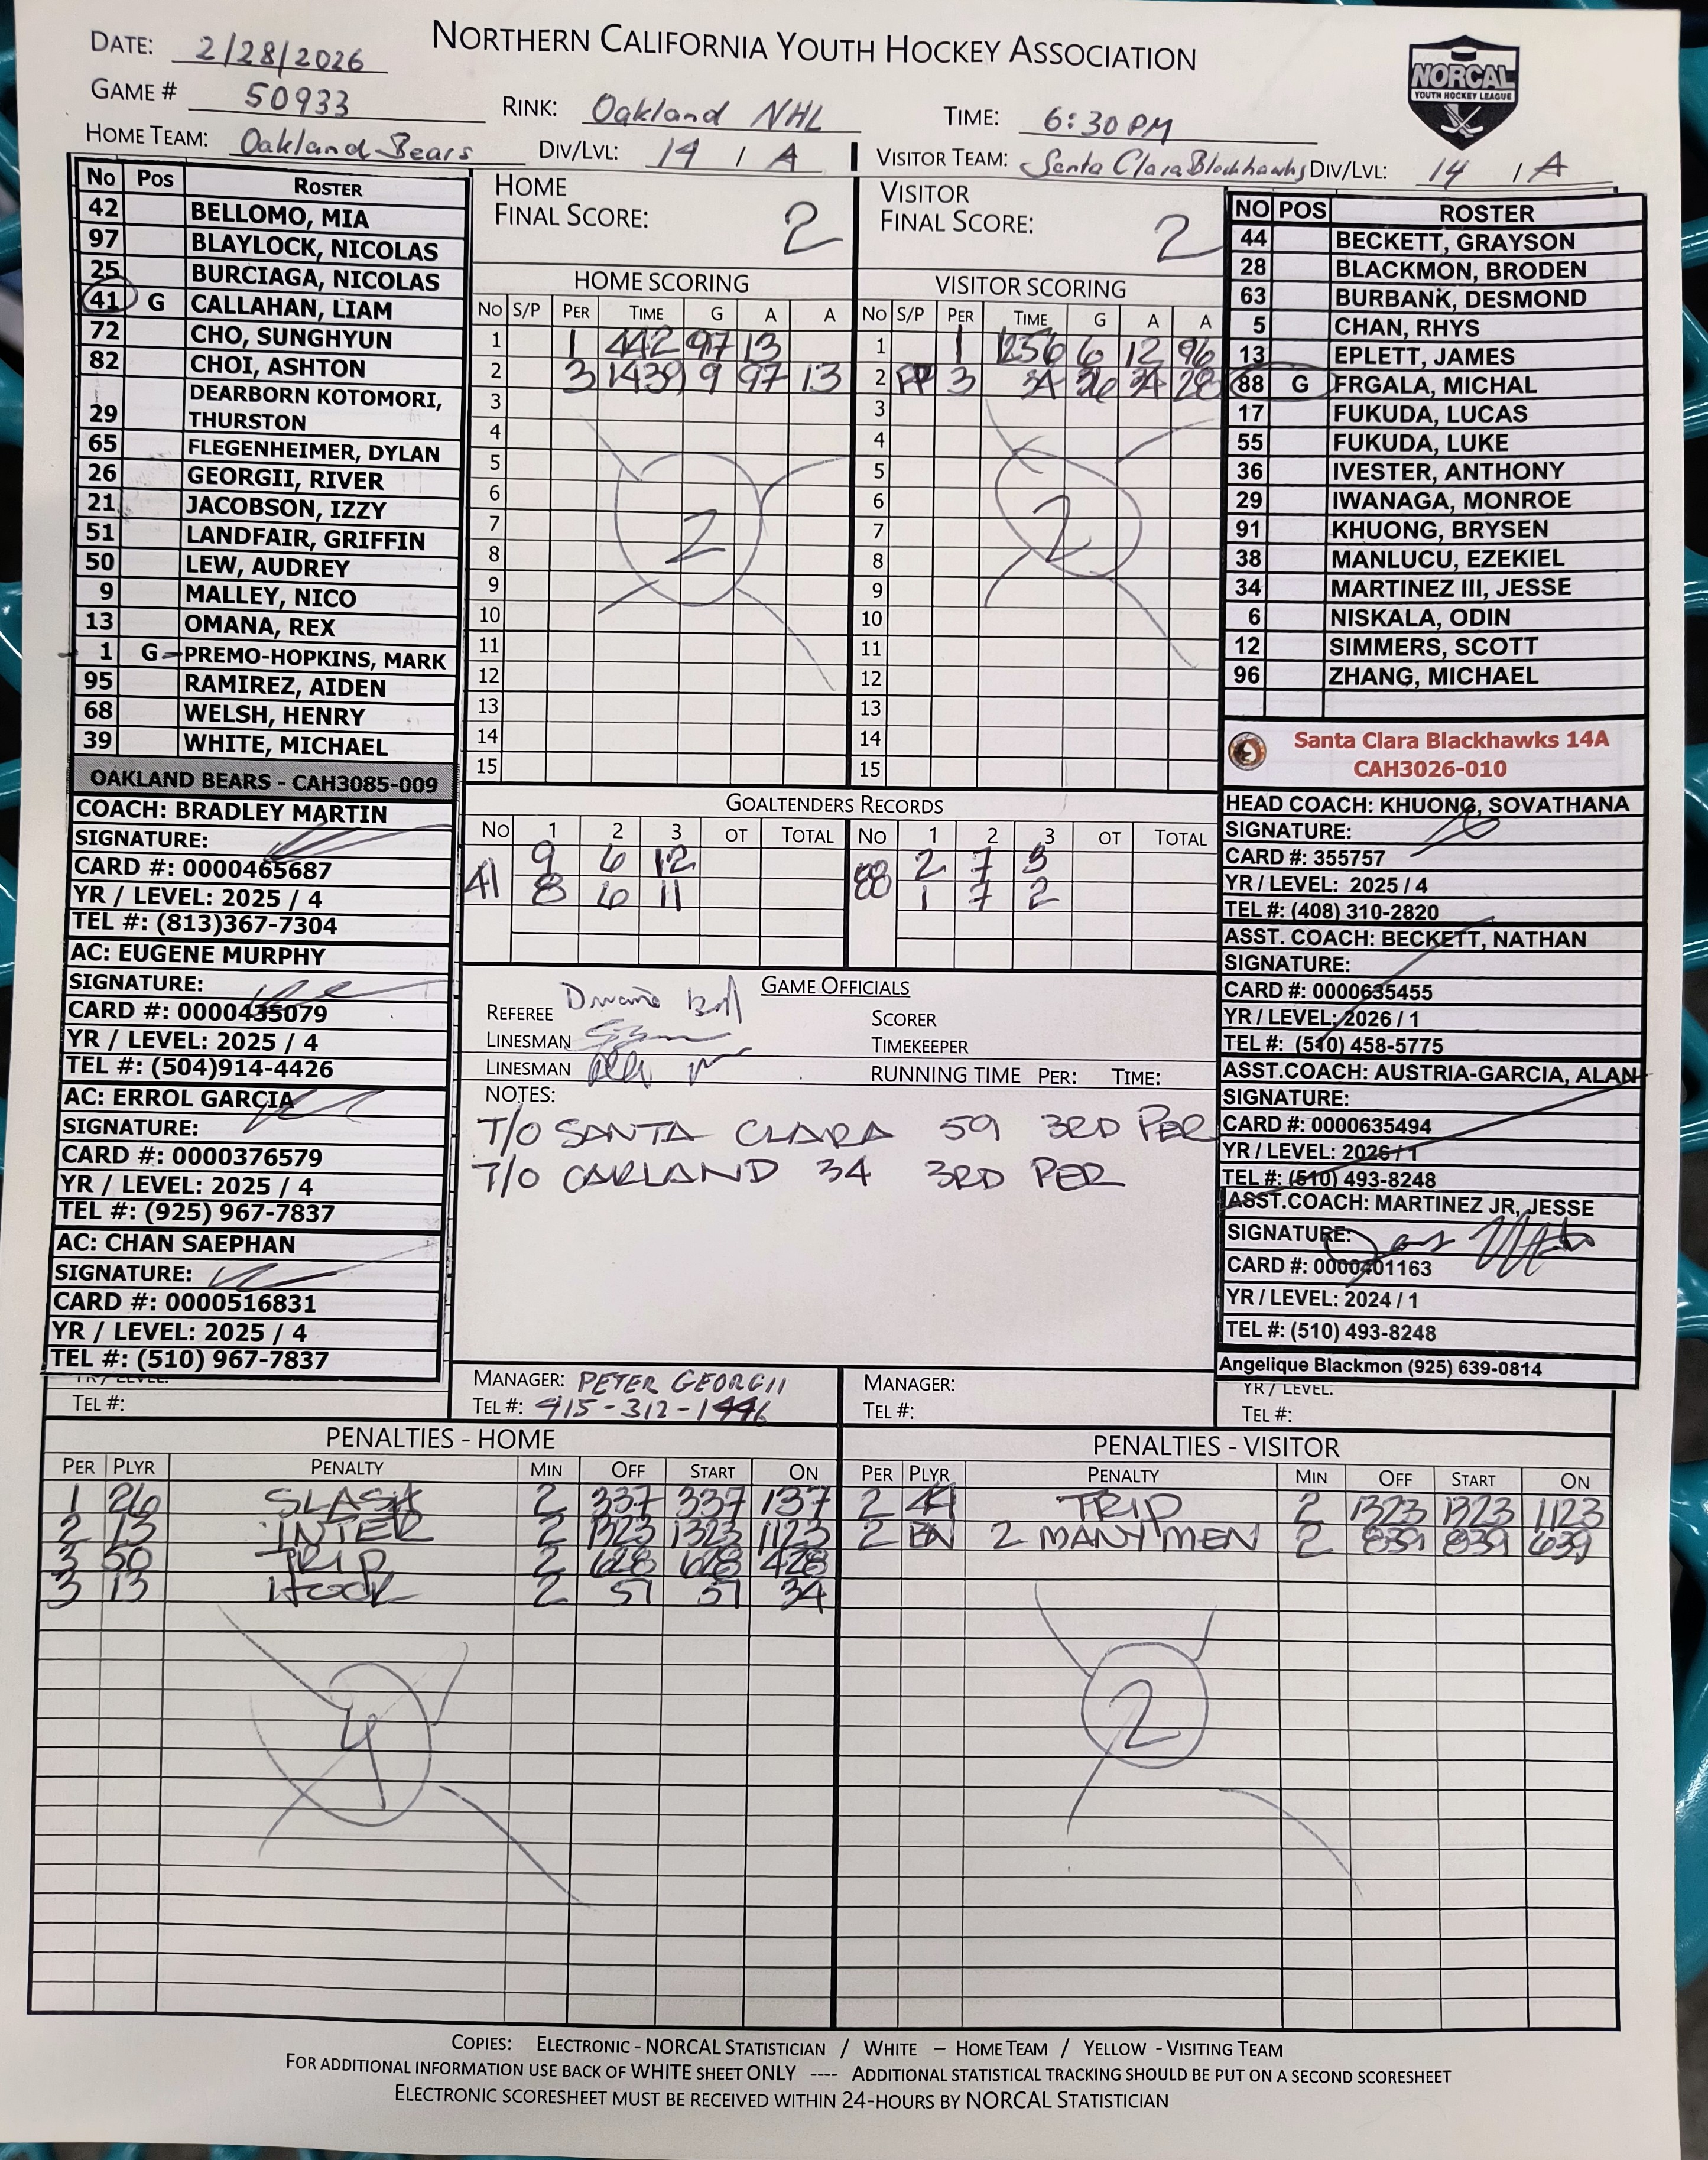 NORTHERN CALIFORNIA YOUTH HOCKEY ASSOCIATION
DATE: 2/28/2026
GAME # 50933
RINK: Oakland NHL
TIME: 6:30 PM
NORCAL
YOUTH HOCKEY LEAGUE
HOME TEAM: Oakland Bears DIV/LVL: 14 / A
VISITOR TEAM: Santa Clara Blackhawks DIV/LVL: 14 / A
No Pos ROSTER
42 BELLOMO, MIA
97 BLAYLOCK, NICOLAS
25 BURCIAGA, NICOLAS
41 G CALLAHAN, LIAM
72 CHO, SUNGHYUN
82 CHOI, ASHTON
DEARBORN KOTOMORI,
29 THURSTON
65 FLEGENHEIMER, DYLAN
26 GEORGII, RIVER
21 JACOBSON, IZZY
51 LANDFAIR, GRIFFIN
50 LEW, AUDREY
9 MALLEY, NICO
13 OMANA, REX
1 G PREMO-HOPKINS, MARK
95 RAMIREZ, AIDEN
68 WELSH, HENRY
39 WHITE, MICHAEL
OAKLAND BEARS - CAH3085-009
COACH: BRADLEY MARTIN
SIGNATURE:
CARD #: 0000465687
YR / LEVEL: 2025 / 4
TEL #: (813)367-7304
AC: EUGENE MURPHY
SIGNATURE:
CARD #: 0000435079
YR / LEVEL: 2025 / 4
TEL #: (504)914-4426
AC: ERROL GARCIA
SIGNATURE:
CARD #: 0000376579
YR / LEVEL: 2025 / 4
TEL #: (925) 967-7837
AC: CHAN SAEPHAN
SIGNATURE:
CARD #: 0000516831
YR / LEVEL: 2025 / 4
TEL #: (510) 967-7837
YR / LEVEL:
TEL #:
HOME
FINAL SCORE: 2
HOME SCORING
No S/P PER TIME G A A
1 1 442 97 13
2 3 1439 9 97 13
3
4
5
6
7
8
9
10
11
12
13
14
15
2
VISITOR
FINAL SCORE: 2
VISITOR SCORING
No S/P PER TIME G A A
1 1 1256 6 12 96
2 PP 3 34 26 34 28
3
4
5
6
7
8
9
10
11
12
13
14
15
2
GOALTENDERS RECORDS
No 1 2 3 OT TOTAL No 1 2 3 OT TOTAL
9 6 12 2 7 3
41 8 6 11 88 1 7 2
GAME OFFICIALS
REFEREE
SCORER
LINESMAN
TIMEKEEPER
LINESMAN
RUNNING TIME PER: TIME:
NOTES:
T/O SANTA CLARA 59 3RD PER
T/O OAKLAND 34 3RD PER
MANAGER: PETER GEORGII
TEL #: 415-312-1446
MANAGER:
TEL #:
NO POS ROSTER
44 BECKETT, GRAYSON
28 BLACKMON, BRODEN
63 BURBANK, DESMOND
5 CHAN, RHYS
13 EPLETT, JAMES
88 G FRGALA, MICHAL
17 FUKUDA, LUCAS
55 FUKUDA, LUKE
36 IVESTER, ANTHONY
29 IWANAGA, MONROE
91 KHUONG, BRYSEN
38 MANLUCU, EZEKIEL
34 MARTINEZ III, JESSE
6 NISKALA, ODIN
12 SIMMERS, SCOTT
96 ZHANG, MICHAEL
Santa Clara Blackhawks 14A
CAH3026-010
HEAD COACH: KHUONG, SOVATHANA
SIGNATURE:
CARD #: 355757
YR / LEVEL: 2025 / 4
TEL #: (408) 310-2820
ASST. COACH: BECKETT, NATHAN
SIGNATURE:
CARD #: 0000635455
YR / LEVEL: 2026 / 1
TEL #: (510) 458-5775
ASST.COACH: AUSTRIA-GARCIA, ALAN
SIGNATURE:
CARD #: 0000635494
YR / LEVEL: 2026 / 1
TEL #: (510) 493-8248
ASST.COACH: MARTINEZ JR, JESSE
SIGNATURE:
CARD #: 0000401163
YR / LEVEL: 2024 / 1
TEL #: (510) 493-8248
Angelique Blackmon (925) 639-0814
YR / LEVEL:
TEL #:
PENALTIES - HOME
PER PLYR PENALTY MIN OFF START ON
1 26 SLASH 2 337 337 137
2 13 INTER 2 1323 1323 1123
3 50 TRIP 2 628 628 428
3 13 HOOK 2 57 57 34
4
PENALTIES - VISITOR
PER PLYR PENALTY MIN OFF START ON
2 44 TRIP 2 1323 1323 1123
2 BN 2 MANY MEN 2 839 839 639
2
COPIES: ELECTRONIC - NORCAL STATISTICIAN / WHITE – HOME TEAM / YELLOW - VISITING TEAM
FOR ADDITIONAL INFORMATION USE BACK OF WHITE SHEET ONLY ---- ADDITIONAL STATISTICAL TRACKING SHOULD BE PUT ON A SECOND SCORESHEET
ELECTRONIC SCORESHEET MUST BE RECEIVED WITHIN 24-HOURS BY NORCAL STATISTICIAN